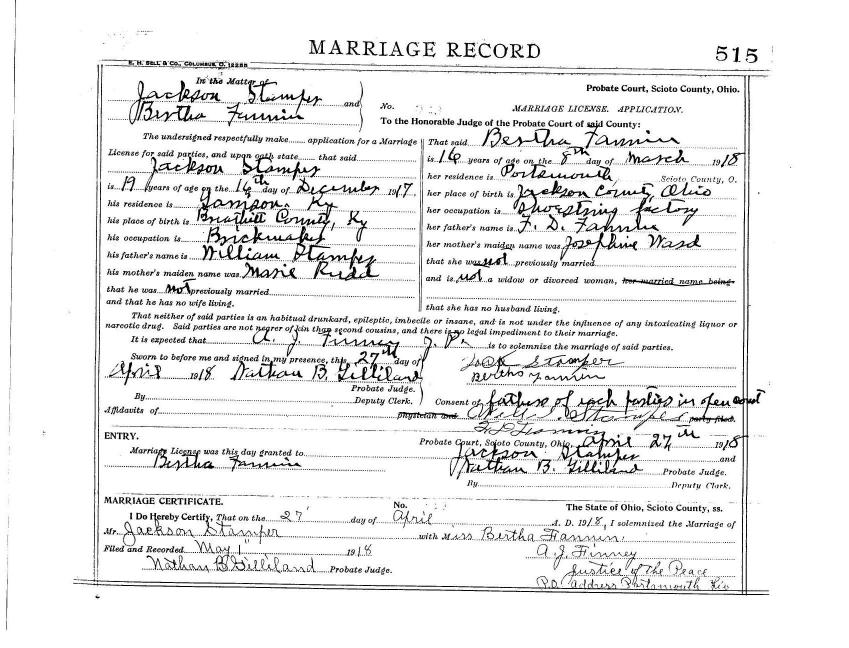 MARRIAGE RECORD
515
E. H. BELL & CO., COLUMBUS, O. 12288
In the Matter of
Jackson Stamper
and
Bertha Fannin
The undersigned respectfully make application for a Marriage
License for said parties, and upon oath state that said
Jackson Stamper
is 19 years of age on the 16th day of December 1917,
his residence is Jamison, Ky
his place of birth is County, Ky
his occupation is Brickmaker
his father's name is William Stamper
his mother's maiden name was Marie Rudd
that he was not previously married
and that he has no wife living.
Probate Court, Scioto County, Ohio.
No.
MARRIAGE LICENSE. APPLICATION.
To the Honorable Judge of the Probate Court of said County:
That said Bertha Fannin
is 16 years of age on the 8th day of March 1918
her residence is Portsmouth, Scioto County, O.
her place of birth is Jackson County, Ohio
her occupation is Shoestring factory
her father's name is F. D. Fannin
her mother's maiden name was Josephine Ward
that she was not previously married
and is not a widow or divorced woman, her married name being
that she has no husband living.
That neither of said parties is an habitual drunkard, epileptic, imbecile or insane, and is not under the influence of any intoxicating liquor or
narcotic drug. Said parties are not nearer of kin than second cousins, and there is no legal impediment to their marriage.
It is expected that A. J. Finney J. P. is to solemnize the marriage of said parties.
Sworn to before me and signed in my presence, this 27th day of
April 1918 Nathan B. Gilliland
Probate Judge.
By Deputy Clerk.
Jack Stamper
Bertha Fannin
Consent of fathers of each parties in open court
Affidavits of physician and Will Stamper party filed.
Fannin
ENTRY.
Marriage License was this day granted to
Bertha Fannin
Probate Court, Scioto County, Ohio, April 27th 1918
Jackson Stamper and
Nathan B. Gilliland Probate Judge.
By Deputy Clerk.
MARRIAGE CERTIFICATE.
No.
The State of Ohio, Scioto County, ss.
I Do Hereby Certify, That on the 27 day of April A. D. 1918, I solemnized the Marriage of
Mr. Jackson Stamper with Miss Bertha Fannin.
Filed and Recorded May 1 1918
A. J. Finney
Nathan B Gilliland Probate Judge.
Justice of the Peace
P.O. address Portsmouth